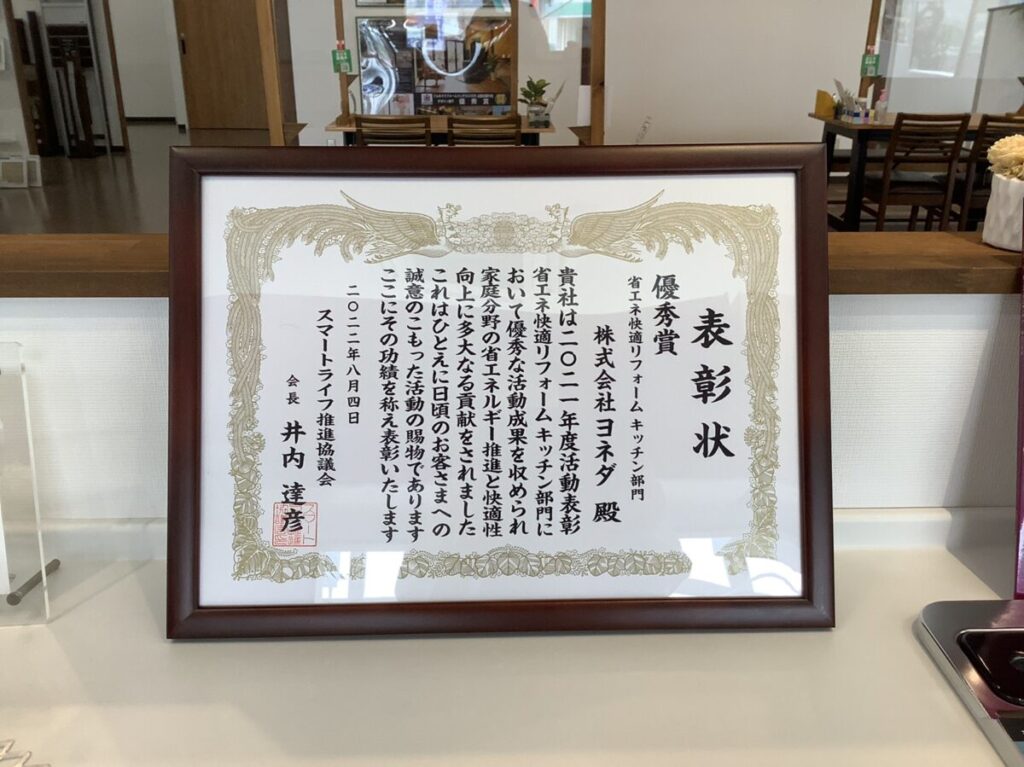 表彰状
優秀賞
省エネ快適リフォーム キッチン部門
株式会社ヨネダ 殿
貴社は二〇二一年度活動表彰
省エネ快適リフォーム キッチン部門に
おいて優秀な活動成果を収められ
家庭分野の省エネルギー推進と快適性
向上に多大なる貢献をされました
これはひとえに日頃のお客さまへの
誠意のこもった活動の賜物であります
ここにその功績を称え表彰いたします
二〇二二年八月四日
スマートライフ推進協議会
会長 井内 達彦
優秀賞